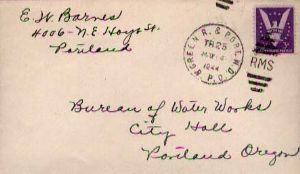 E. W. Barnes
4006 - N. E. Hoyt St.
Portland
GREEN R. & PORTL'D
TR 25
1944
R.P.O.
RMS
Bureau of Water Works
City Hall
Portland Oregon